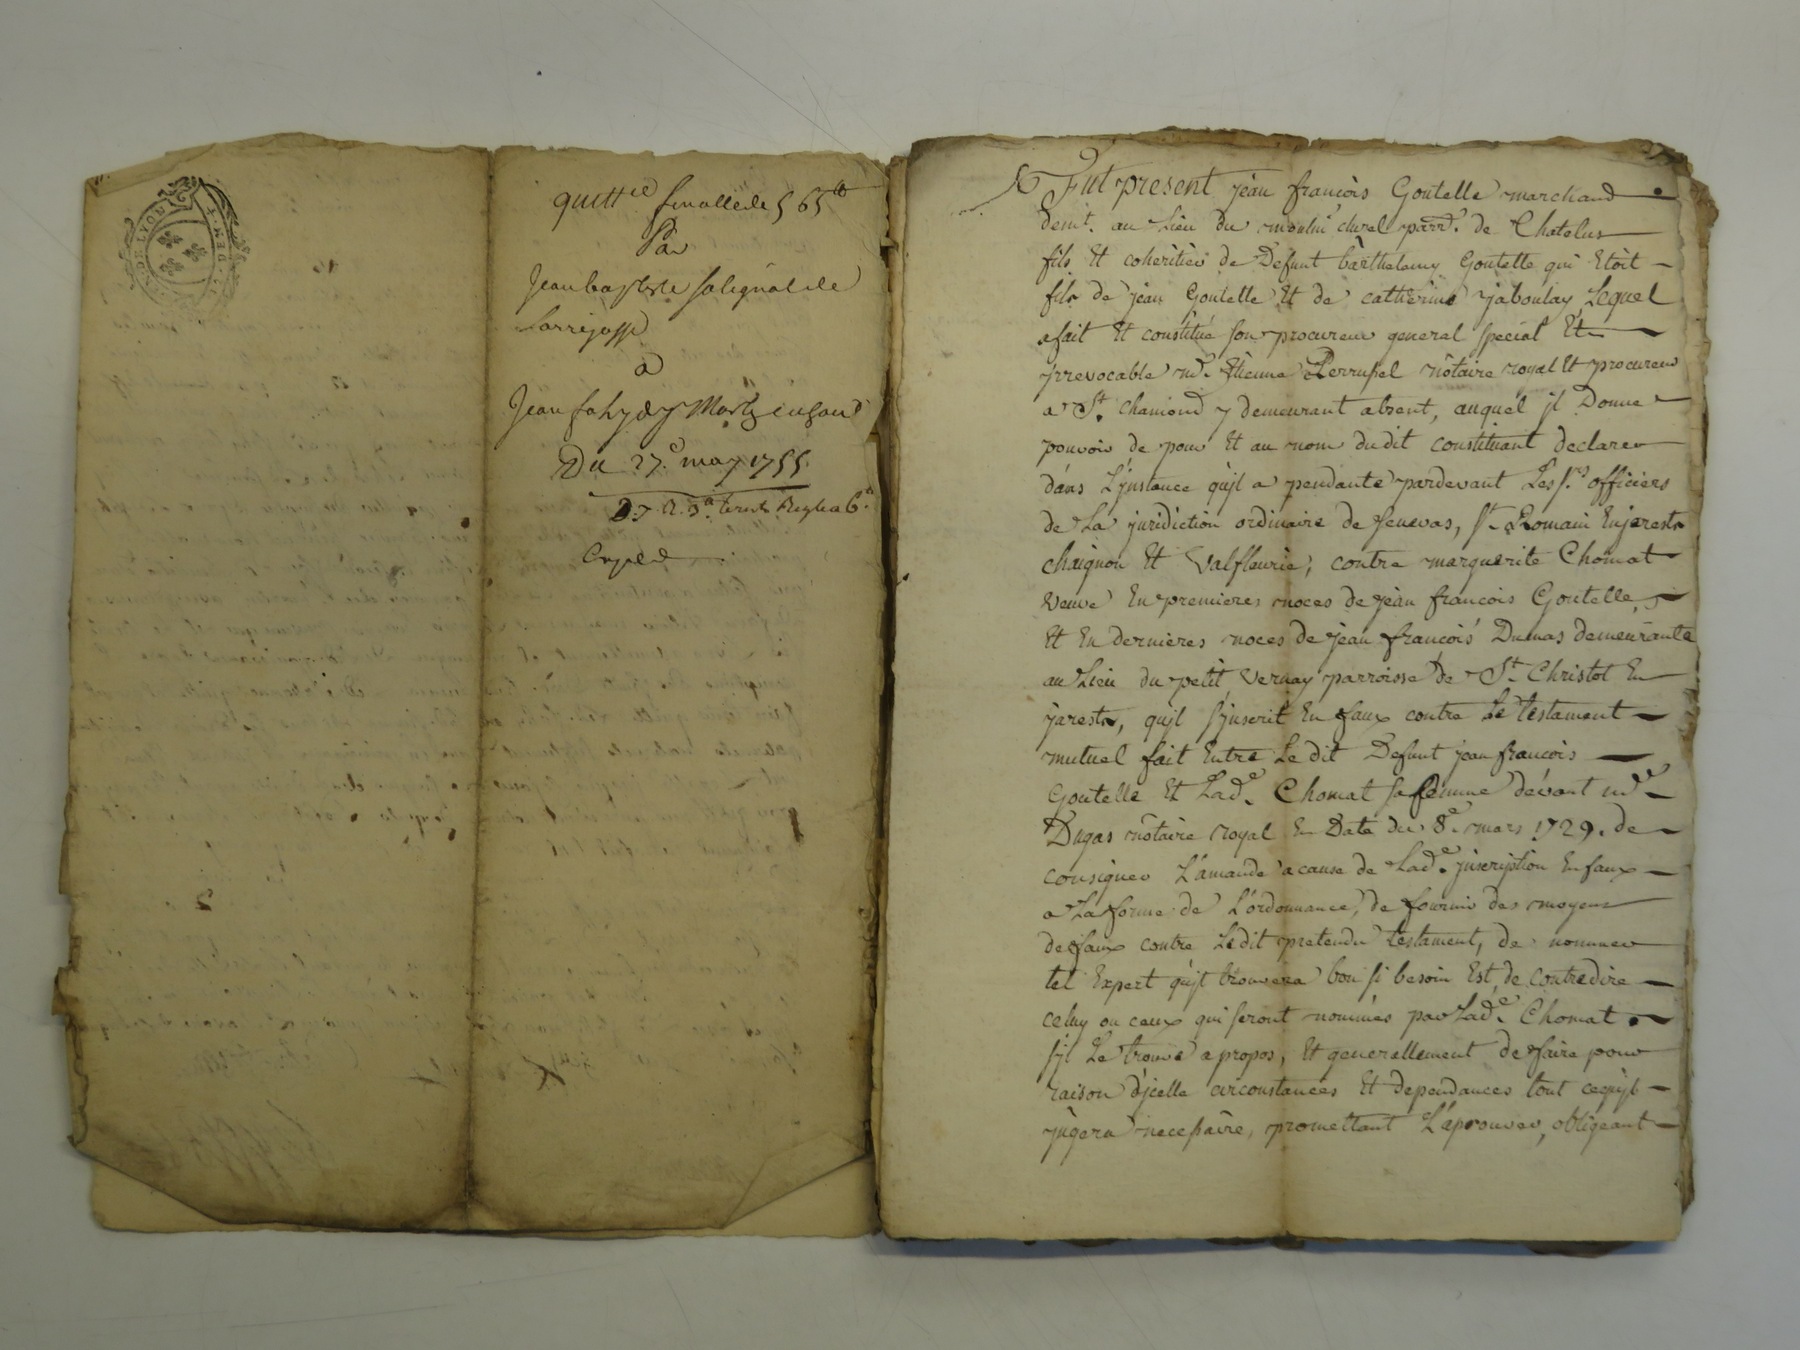 GEN. DE LYON
quittce finalle de 565 lt
Par
Jean baptiste salignat de
Larrejasse
a
Jean fahy de
Du 27.e may 1755.
Fut present jean francois Goutelle marchand
demt. au Lieu du moulin churel parr.e de Chatelus
fils Et coheritier de Defunt barthelemy Goutelle qui Etoit
fils de jean Goutelle Et de catherine jaboulay Lequel
a fait Et constitué son procureur general special Et
jrrevocable me. Etienne Perrussel nôtaire royal Et procureur
a St. chamond y demeurant absent, auquel jl Donne
pouvoir de pour Et au nom dudit constituant declarer
dans L'jnstance qu'jl a pendante pardevant Les srs officiers
de La juridiction ordinaire de senevas, st. Romain Enjarests
chaignon Et Valfleurie, contre marguerite Chomat
veuve En premieres noces de jean francois Goutelle,
Et En dernieres noces de jean francois Dumas demeurante
au Lieu du petit vernay parroisse de St. Christot En
jarests, qu'jl s'jnscrit En faux contre Le testament
mutuel fait Entre Le dit Defunt jean francois
Goutelle Et Lad.e Chomat sa femme dévant me
Dugas nôtaire royal En Date du 8e. mars 1729. de
consigner L'amande a cause de Lad.e jnscription En faux
a La forme de L'ordonnance, de fournir des moyens
de faux contre Ledit pretendu testament, de nommer
tel Expert qu'jl trouvera bon si besoin Est, de contredire
celuy ou ceux qui seront nommés par Lad.e Chomat.
s'jl Le trouve a propos, Et generallement de faire pour
raison d'jcelle circonstances Et dependances tout cequ'jl
jugera necessaire, promettant L'aprouver, obligeant